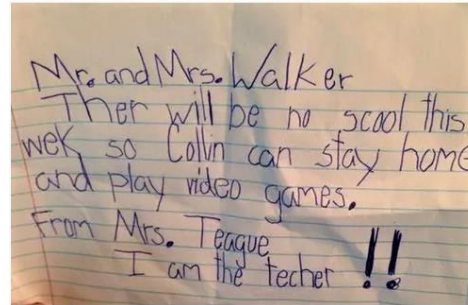 Mr. and Mrs. Walker
Ther will be no scool this
wek, so Collin can stay home
and play video games.
From Mrs. Teague
I am the techer !!